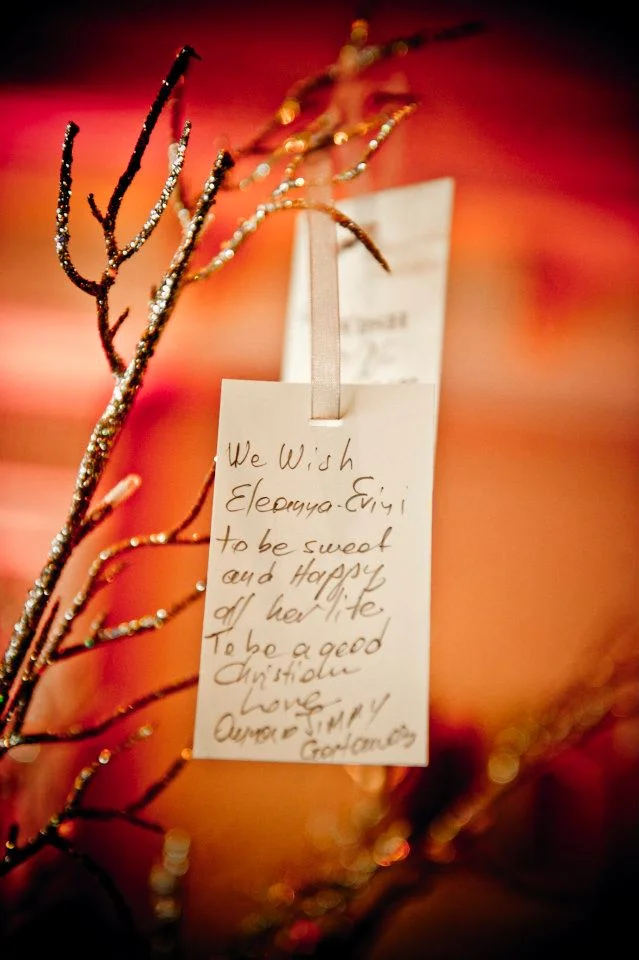 We Wish
Eleanna-Evivi
to be sweet
and Happy
all her life
To be a good
Christian
Love
JIMMY